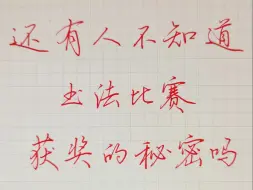 还有人不知道
书法比赛
获奖的秘密吗